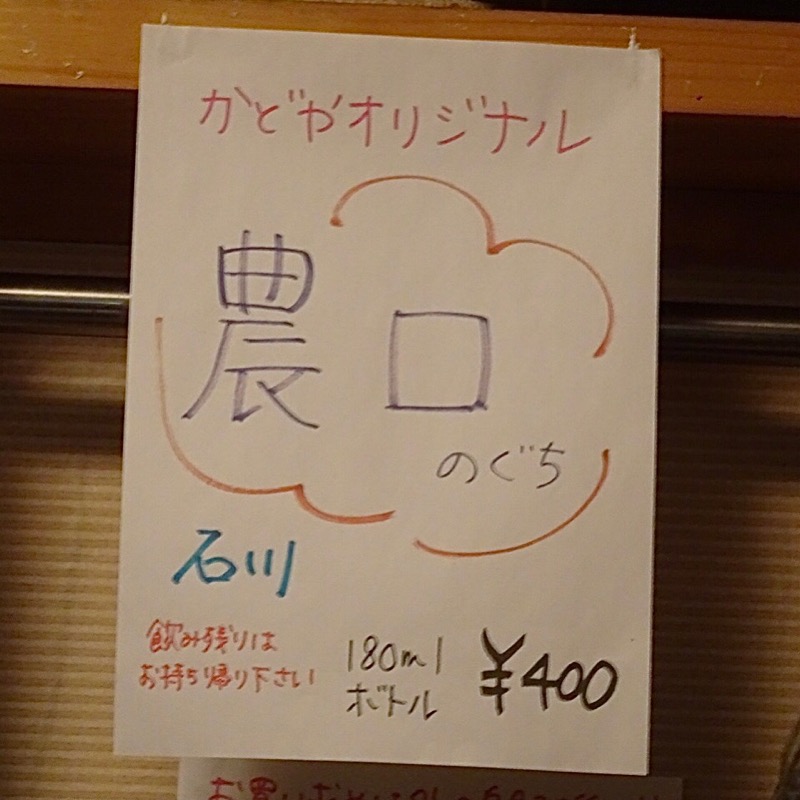 かどやオリジナル
農口
のぐち
石川
飲み残りは
お持ち帰り下さい
180ml
ボトル
¥400